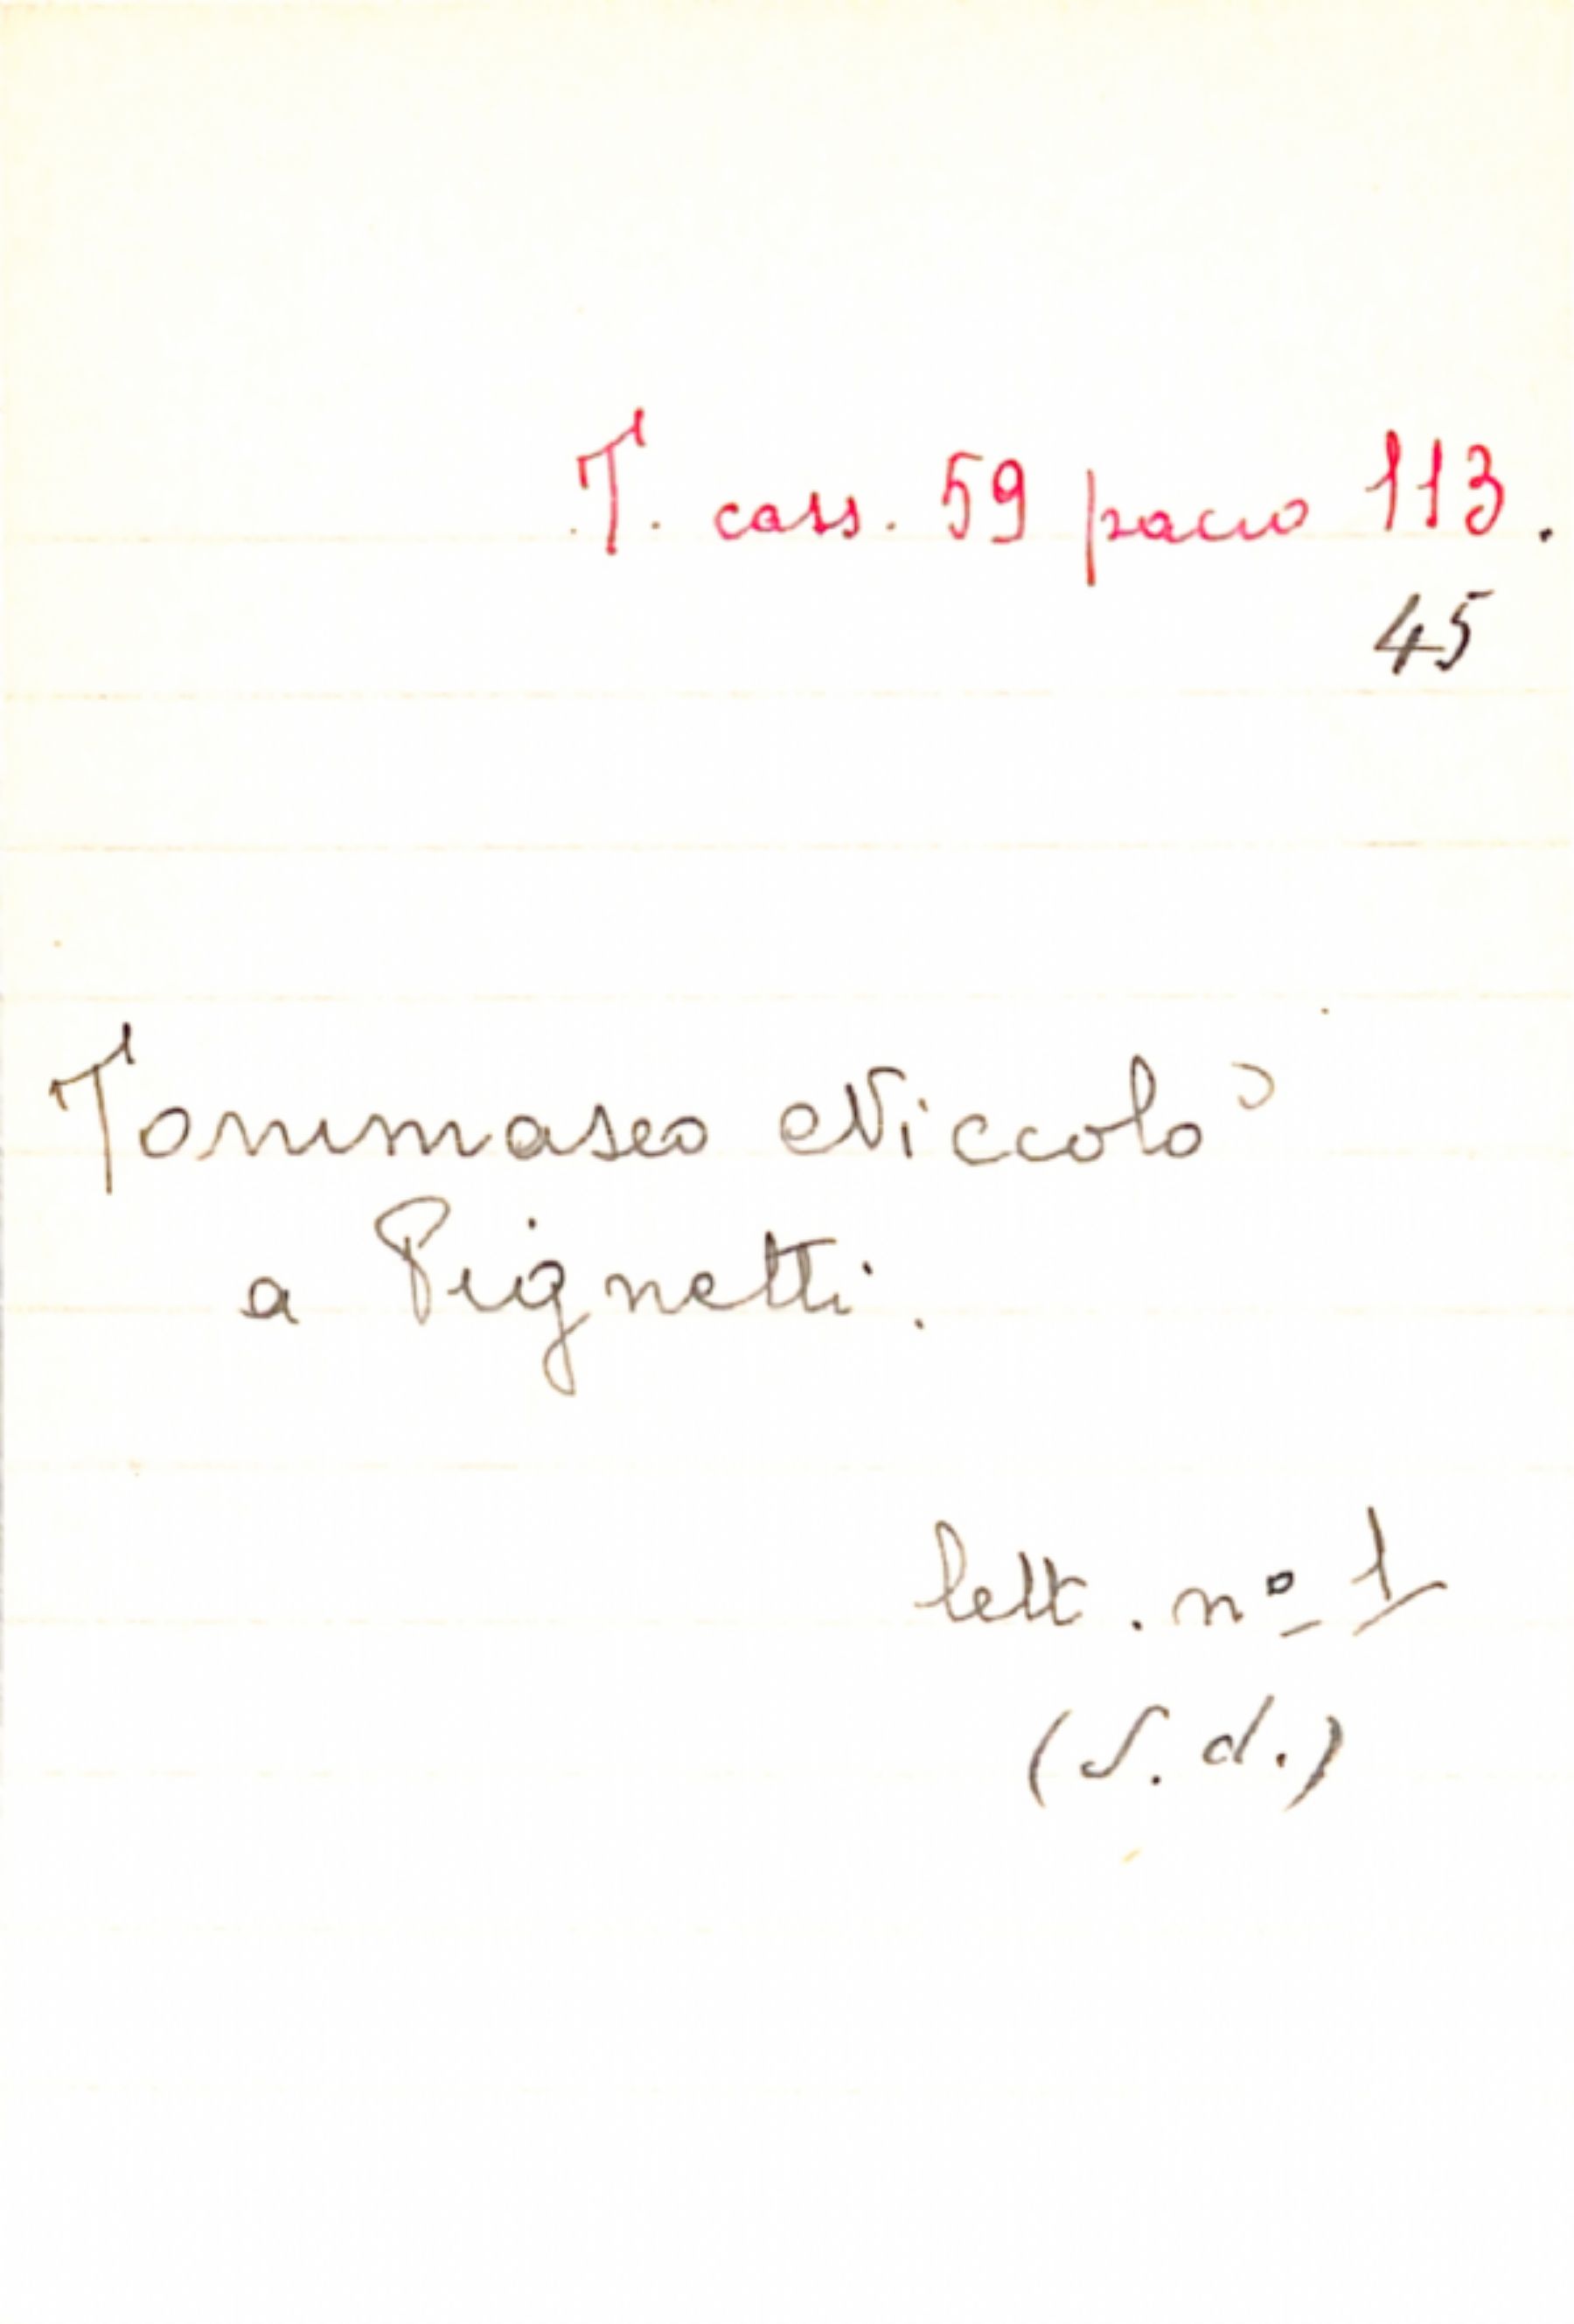 T. cass. 59 pacco 113.
45
Tommaseo Niccolò
a Pignetti.
lett. nº 1
(S. d.)